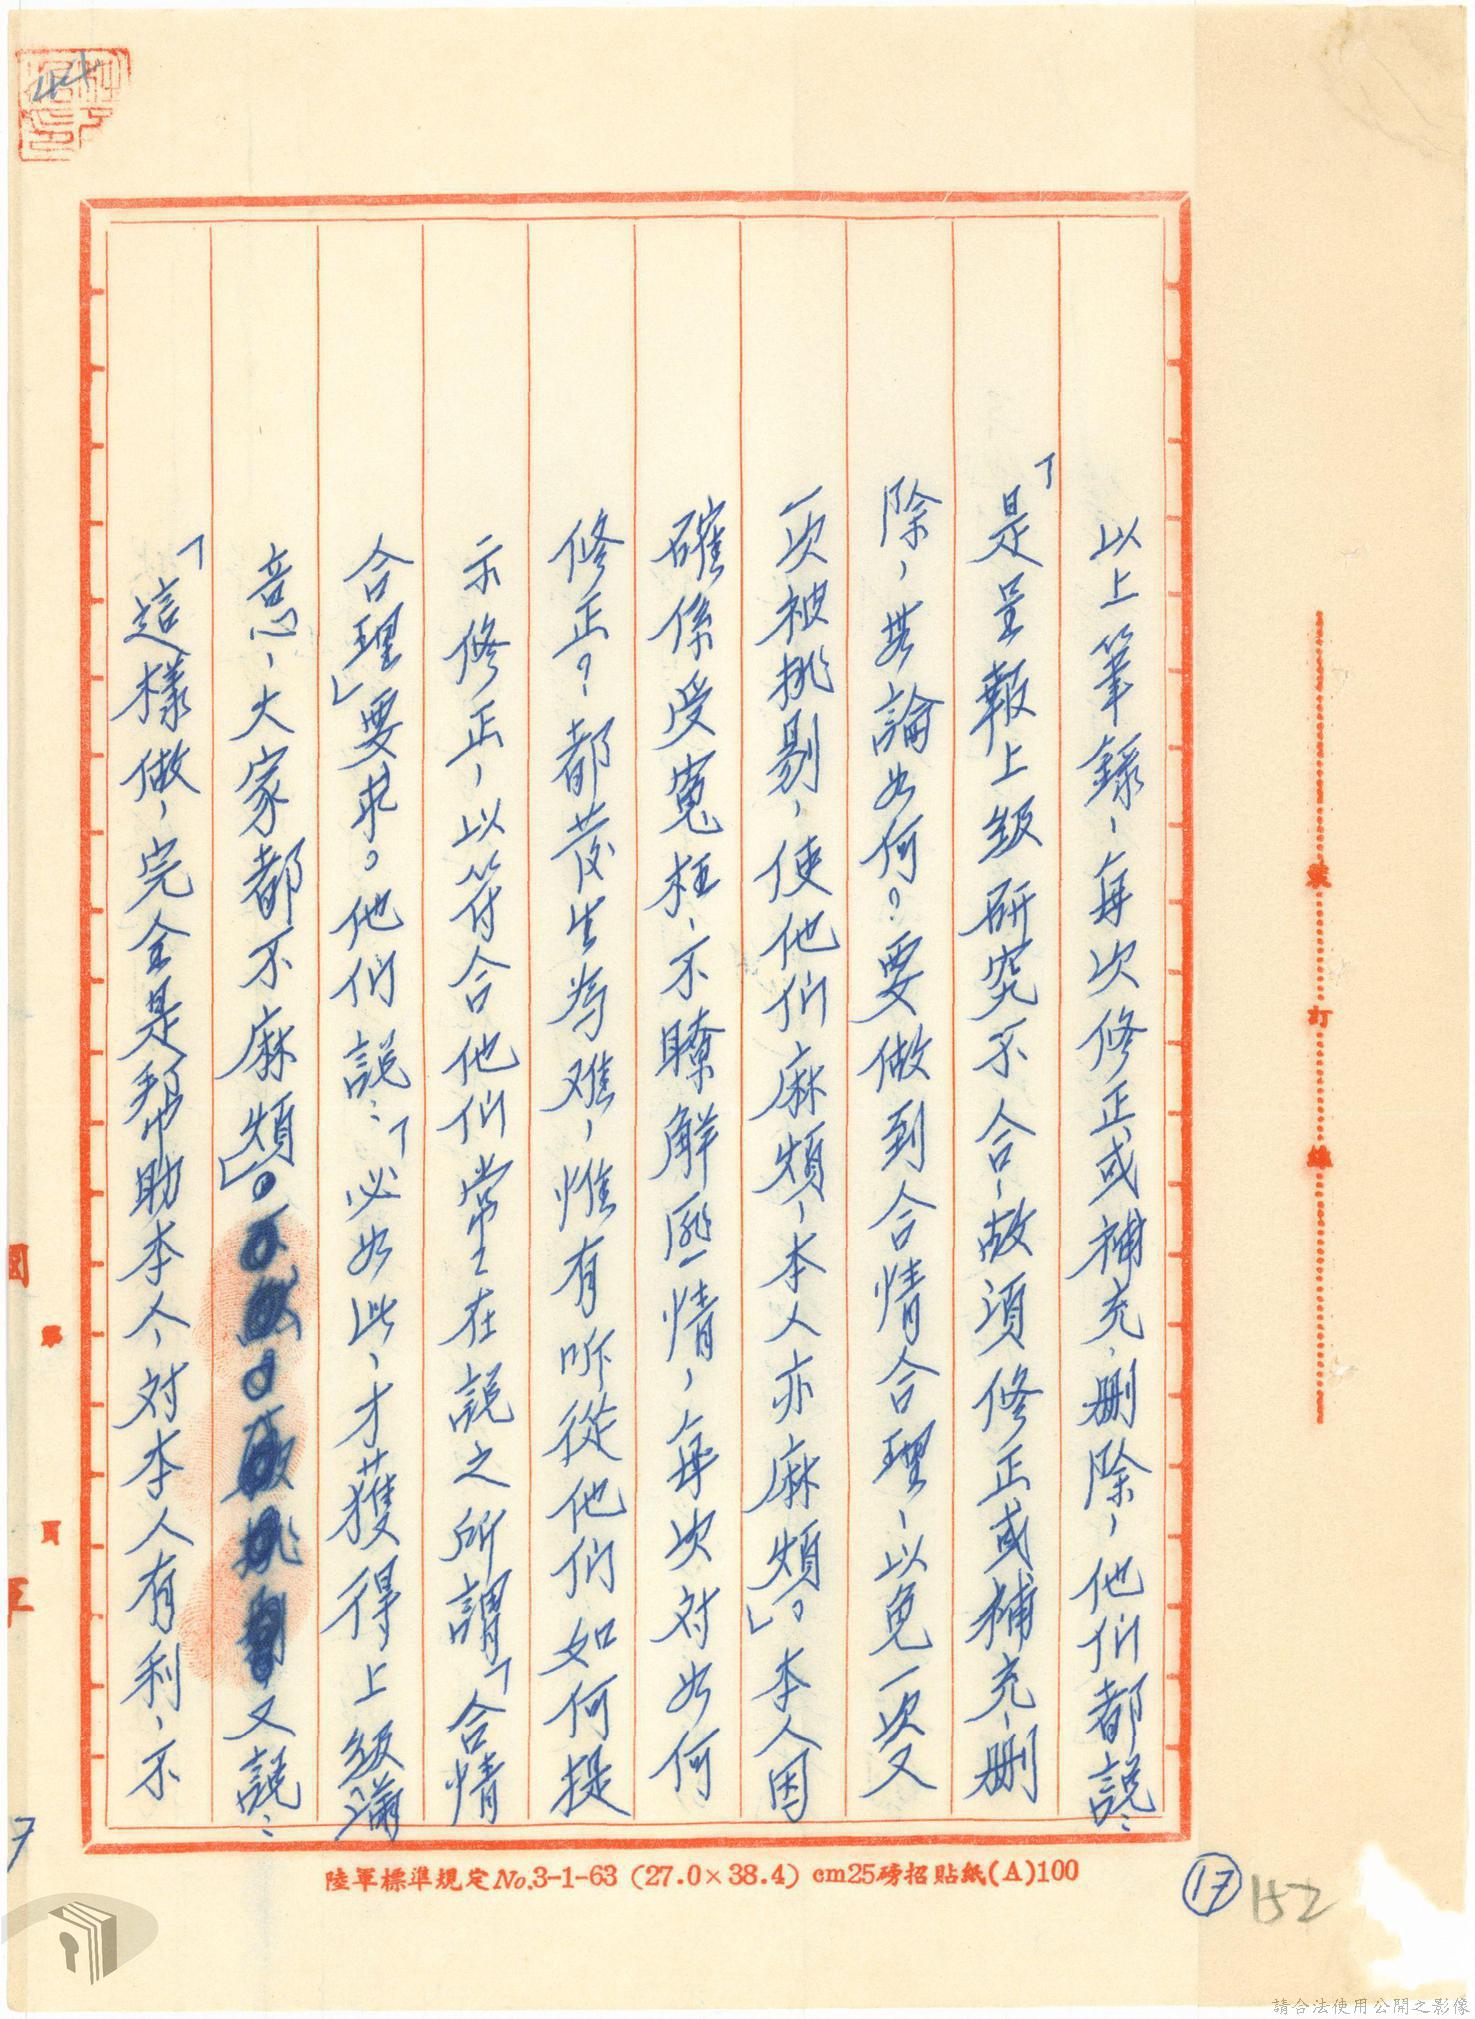 以上筆錄，每次修正或補充，刪除，他们都說：
「是呈報上級研究不合，故須修正或補充，刪
除，無論如何？要做到合情合理，以免一次又
一次被挑剔，使他们麻煩，本人亦麻煩」。本人因
確係受寃枉，不瞭解匪情，每次对如何
修正？都发生為难，惟有听從他们如何提
示修正，以符合他们常常在說之所謂「合情
合理」要求。他们說：「必如此，才獲得上級滿
意，大家都不麻煩」。又說：
「這樣做，完全是帮助本人，对本人有利，不
陸軍標準規定No.3-1-63 (27.0×38.4) cm25磅招貼紙(A)100
⑰
152
裝訂線
第 頁
國
軍
7
44
請合法使用公開之影像